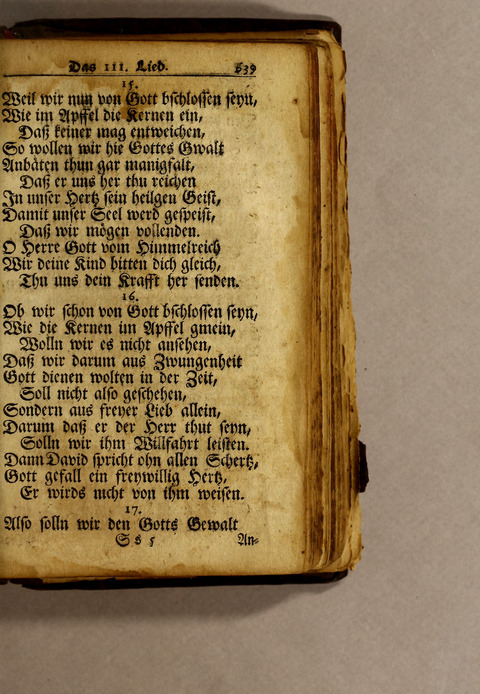 Das III. Lied. 639
15.
Weil wir nun von Gott bschlossen seyn,
Wie im Apffel die Kernen ein,
Daß keiner mag entweichen,
So wollen wir hie Gottes Gwalt
Anbäten thun gar manigfalt,
Daß er uns her thu reichen
In unser Hertz sein heilgen Geist,
Damit unser Seel werd gespeist,
Daß wir mögen vollenden.
O Herre Gott vom Himmelreich
Wir deine Kind bitten dich gleich,
Thu uns dein Krafft her senden.
16.
Ob wir schon von Gott bschlossen seyn,
Wie die Kernen im Apffel gmein,
Wolln wir es nicht ansehen,
Daß wir darum aus Zwungenheit
Gott dienen wolten in der Zeit,
Soll nicht also geschehen,
Sondern aus freyer Lieb allein,
Darum daß er der Herr thut seyn,
Solln wir ihm Willfahrt leisten.
Dann David spricht ohn allen Schertz,
Gott gefall ein freywillig Hertz,
Er wirds nicht von ihm weisen.
17.
Also solln wir den Gotts Gewalt
S s 5 An-